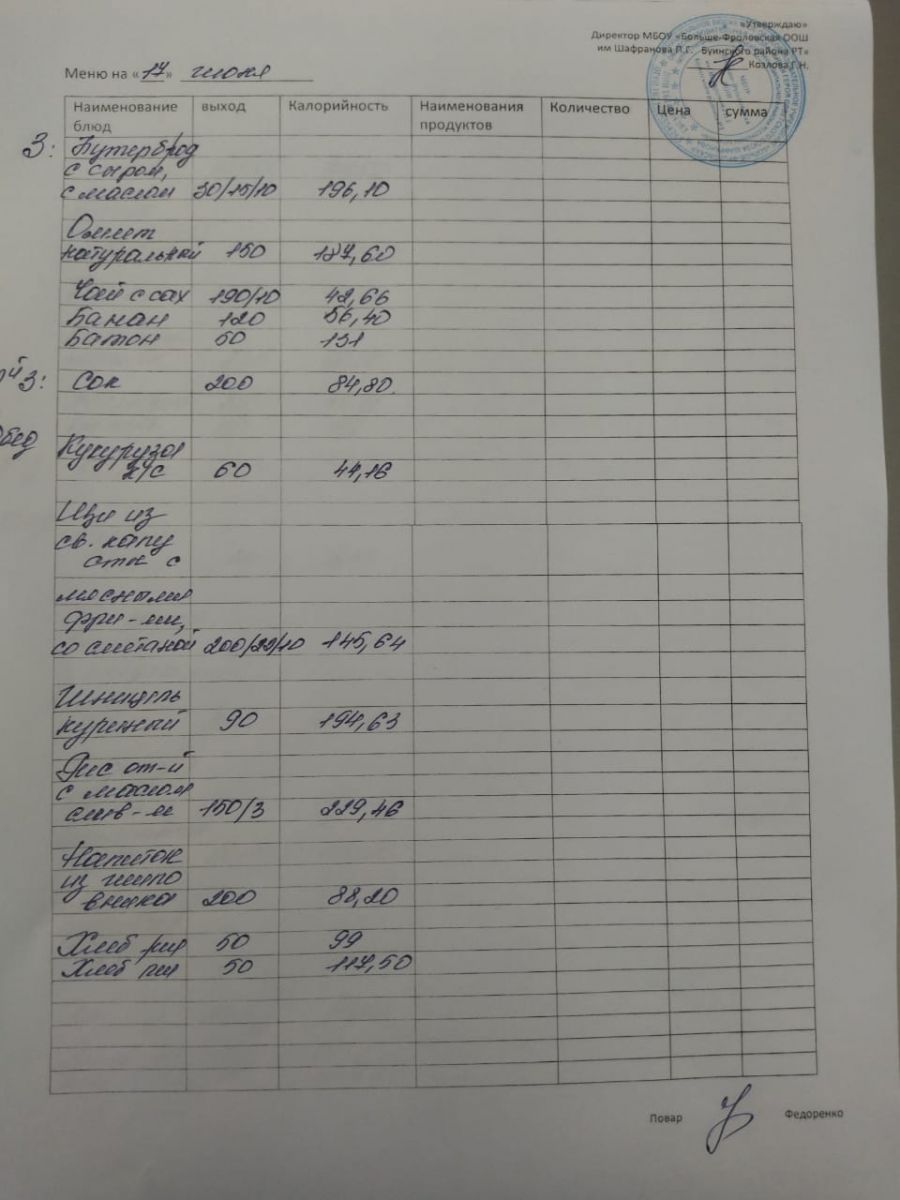 «Утверждаю»
Директор МБОУ «Больше-Фроловская ООШ
им Шафранова П.Г. Буинского района РТ»
Козлова Г.Н.
Меню на «17» июня
Наименование блюд выход Калорийность Наименования продуктов Количество Цена сумма
З: Бутерброд
с сыром,
с маслом 30/15/10 196,10
Омлет
натуральный 150 187,60
Чай с сах 190/10 42,66
Банан 120 56,40
Батон 50 131
й З: Сок 200 84,80
Обед
Кукуруза
к/с 60 44,16
Щи из
св. капу
сты с
мясными
фри-ми,
со сметаной 200/25/10 145,64
Шницель
куриный 90 194,63
Рис от-й
с маслом
слив-м 150/3 229,46
Напиток
из шипо
вника 200 88,20
Хлеб рж 50 99
Хлеб пш 50 117,50
Повар Федоренко